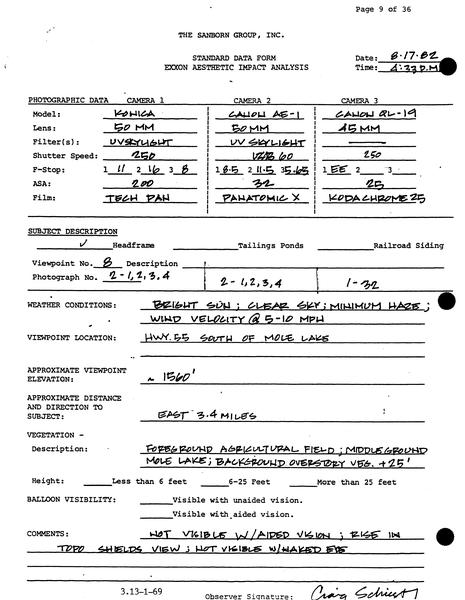 Page 9 of 36
THE SANBORN GROUP, INC.
STANDARD DATA FORM
EXXON AESTHETIC IMPACT ANALYSIS
Date: 8-17-82
Time: 4:33 P.M.
PHOTOGRAPHIC DATA CAMERA 1 CAMERA 2 CAMERA 3
Model: KONICA CANON AE-1 CANON QL-19
Lens: 50 MM 50 MM 45 MM
Filter(s): UV SKYLIGHT UV SKYLIGHT
Shutter Speed: 250 60 250
F-Stop: 1 11 2 16 3 8 1 8.5 2 11.5 3 5.65 1 EE 2 3
ASA: 200 32 25
Film: TECH PAN PANATOMIC X KODACHROME 25
SUBJECT DESCRIPTION
✓ Headframe Tailings Ponds Railroad Siding
Viewpoint No. 8 Description
Photograph No. 2-1,2,3,4 2-1,2,3,4 1-32
WEATHER CONDITIONS: BRIGHT SUN; CLEAR SKY; MINIMUM HAZE;
WIND VELOCITY @ 5-10 MPH
VIEWPOINT LOCATION: HWY. 55 SOUTH OF MOLE LAKE
APPROXIMATE VIEWPOINT
ELEVATION: ~ 1560'
APPROXIMATE DISTANCE
AND DIRECTION TO
SUBJECT: EAST 3.4 MILES
VEGETATION -
Description: FOREGROUND AGRICULTURAL FIELD; MIDDLEGROUND
MOLE LAKE; BACKGROUND OVERSTORY VEG. +25'
Height: Less than 6 feet 6-25 Feet More than 25 feet
BALLOON VISIBILITY: Visible with unaided vision.
Visible with aided vision.
COMMENTS: NOT VISIBLE W/AIDED VISION; RISE IN
TOPO SHIELDS VIEW; NOT VISIBLE W/NAKED EYE
3.13-1-69
Observer Signature: Craig Schieut